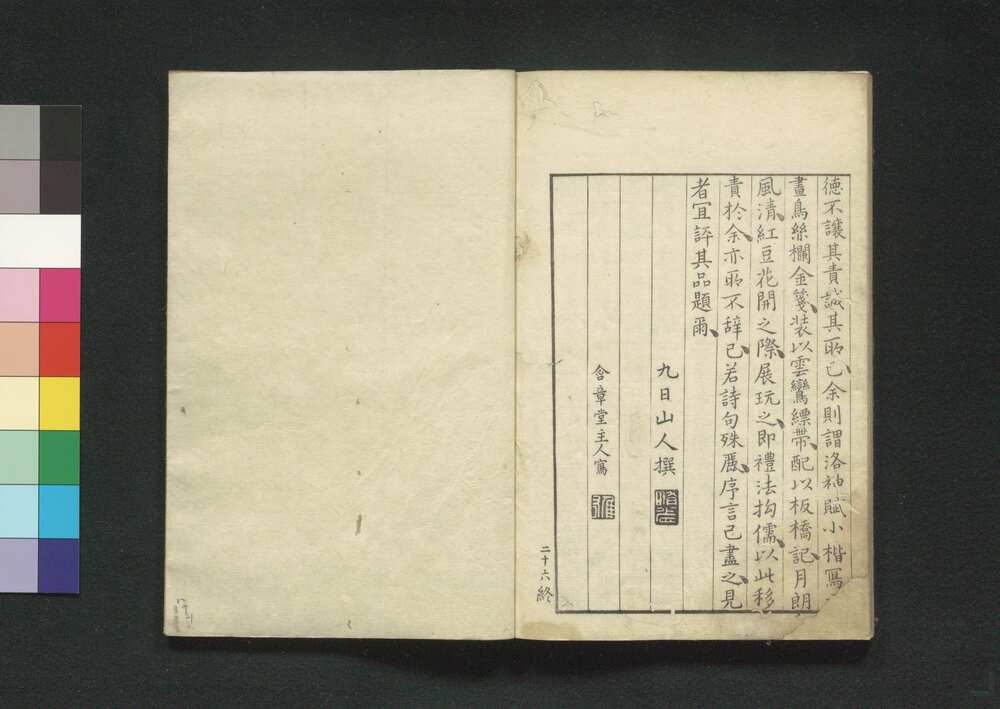 德不讓其責誠其所已余則謂洛神賦小楷寫
晝烏絲欄金箋裝以雲鸞縹帶配以板橋記月朗
風清紅豆花開之際展玩之即禮法拘儒以此移
責於余亦所不辞已若詩句殊麗序言已盡之見
者宜評其品題爾
九日山人撰
含章堂主人寫
二十六終